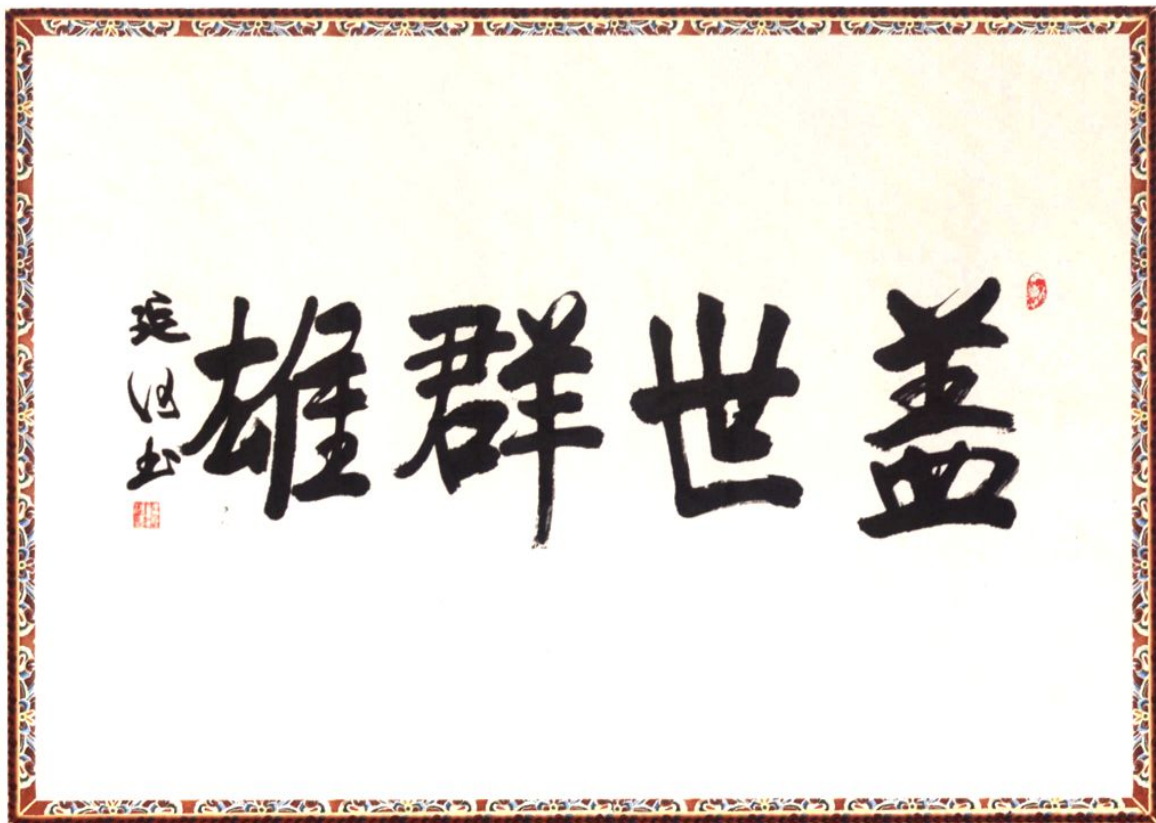 盖世群雄
延河书